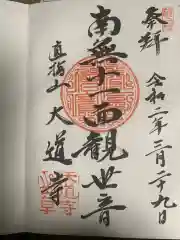 奉拝
令和二年三月二十九日
南無十一面観世音
直指山
大道寺